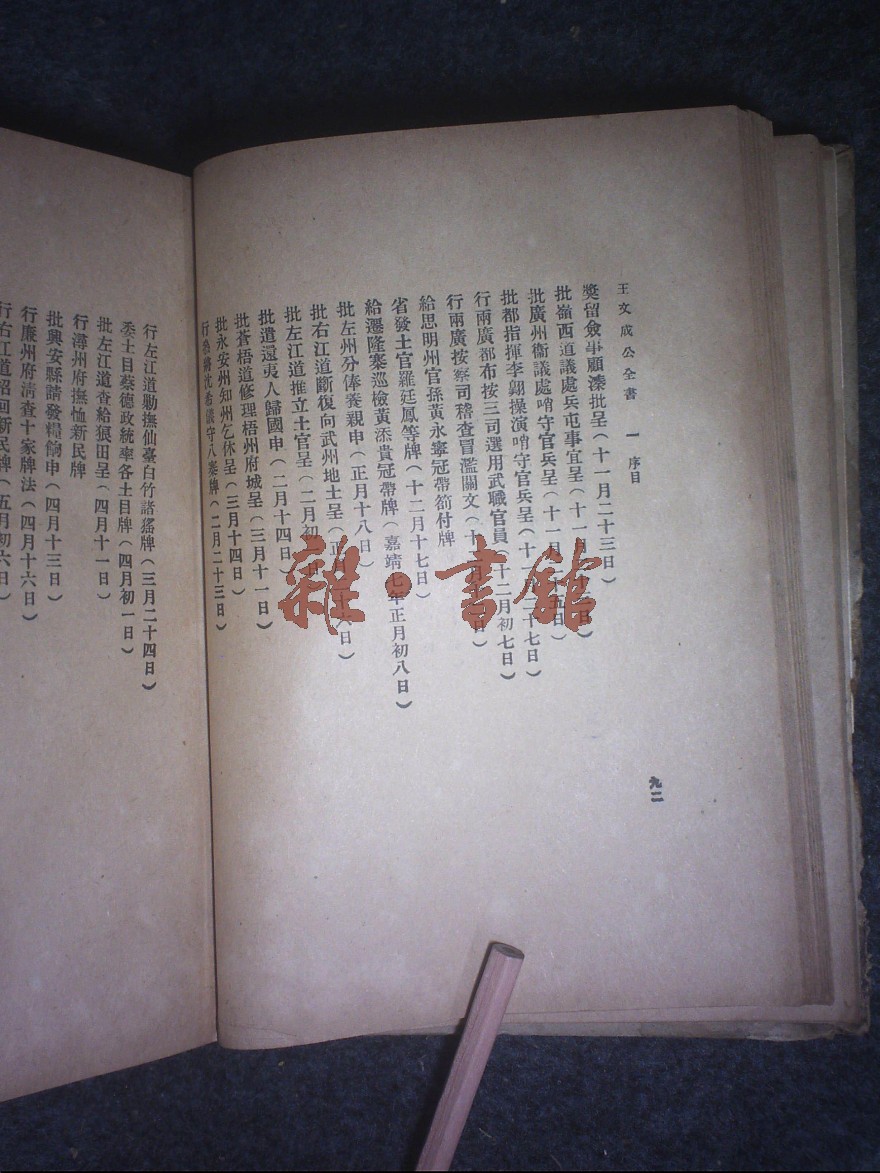 王文成公全書 一 序目
獎留僉事顧溱批呈(十一月二十三日)
批嶺西道議處兵屯事宜呈(十一月 日)
批廣州衞議處哨守官兵呈(十一月 十五日)
批都指揮李翱操演哨守官兵呈(十一月二十七日)
行兩廣都布按三司選用武職官員(十二月初七日)
行兩廣按察司稽查冒濫關文(十 日)
給思明州官孫黃永寧冠帶劄付牌
省發土官羅廷鳳等牌(十二月十七日)
給遷隆寨巡檢黃添貴冠帶牌(嘉靖七年正月初八日)
批左州分俸養親申(正月十八日)
批右江道斷復向武州地土呈(正 六日)
批左江道推立土官呈(二月初 日)
批遣還夷人歸國申(二月十四日)
批蒼梧道修理梧州府城呈(三月十一日)
批永安州知州乞休呈(三月十四日)
行參將沈希儀守八寨牌(二月二十三日)
九二
雜·書館
行左江道勦撫仙臺白竹諸猺牌(三月二十四日)
委土目蔡德政統率各土目牌(四月初一日)
批左江道查給狼田呈(四月十一日)
行潯州府撫恤新民牌
批興安縣請發糧餉申(四月十三日)
行廉州府清查十家牌法(四月十六日)
行右江道招回新民牌(五月初六日)